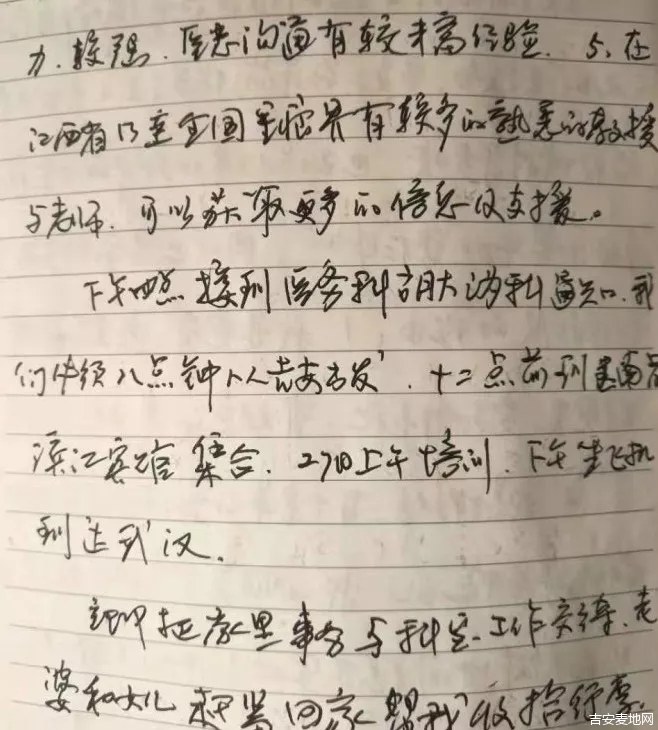 力。较强。医患沟通有较丰富经验。5、在
江西省乃至全国重症界有较多的熟悉的教授
与老师。可以获取更多的信息及支援。
下午四点接到医务科胡大满科通知。我
们必须八点钟从吉安出发，十二点前到达南昌
滨江宾馆集合。27日上午培训，下午坐飞机
到达武汉。
立即把家里事务与科室工作交待，老
婆和女儿赶紧回家帮我收拾行李。
吉安麦地网